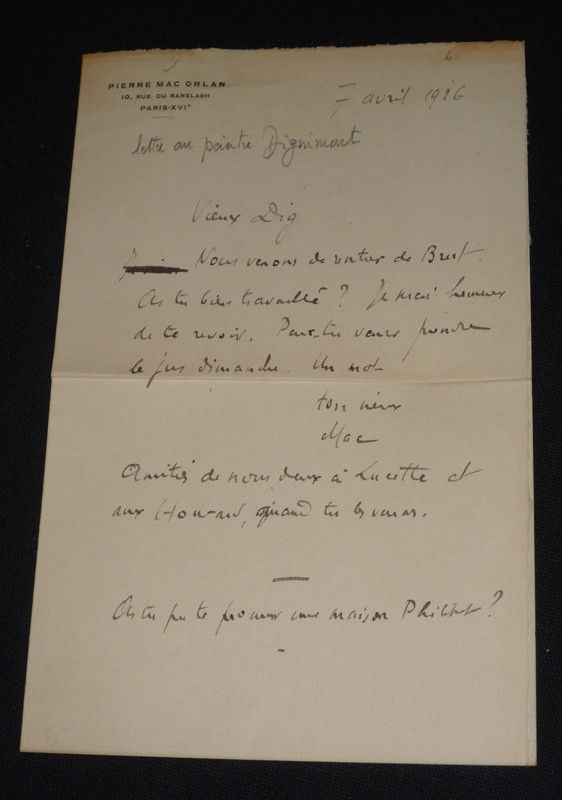 PIERRE MAC ORLAN
10, RUE DU RANELAGH
PARIS-XVIe
7 avril 1926
lettre au peintre Dignimont
Vieux Dig
Nous venons de rentrer de Brest.
As tu bien travaillé ? Je serai heureux
de te revoir. Peux-tu venir prendre
le jus dimanche. Un mot
ton vieux
Mac
Amitiés de nous deux à Lucette et
aux quand tu les verras.
As tu pu te procurer une maison ?